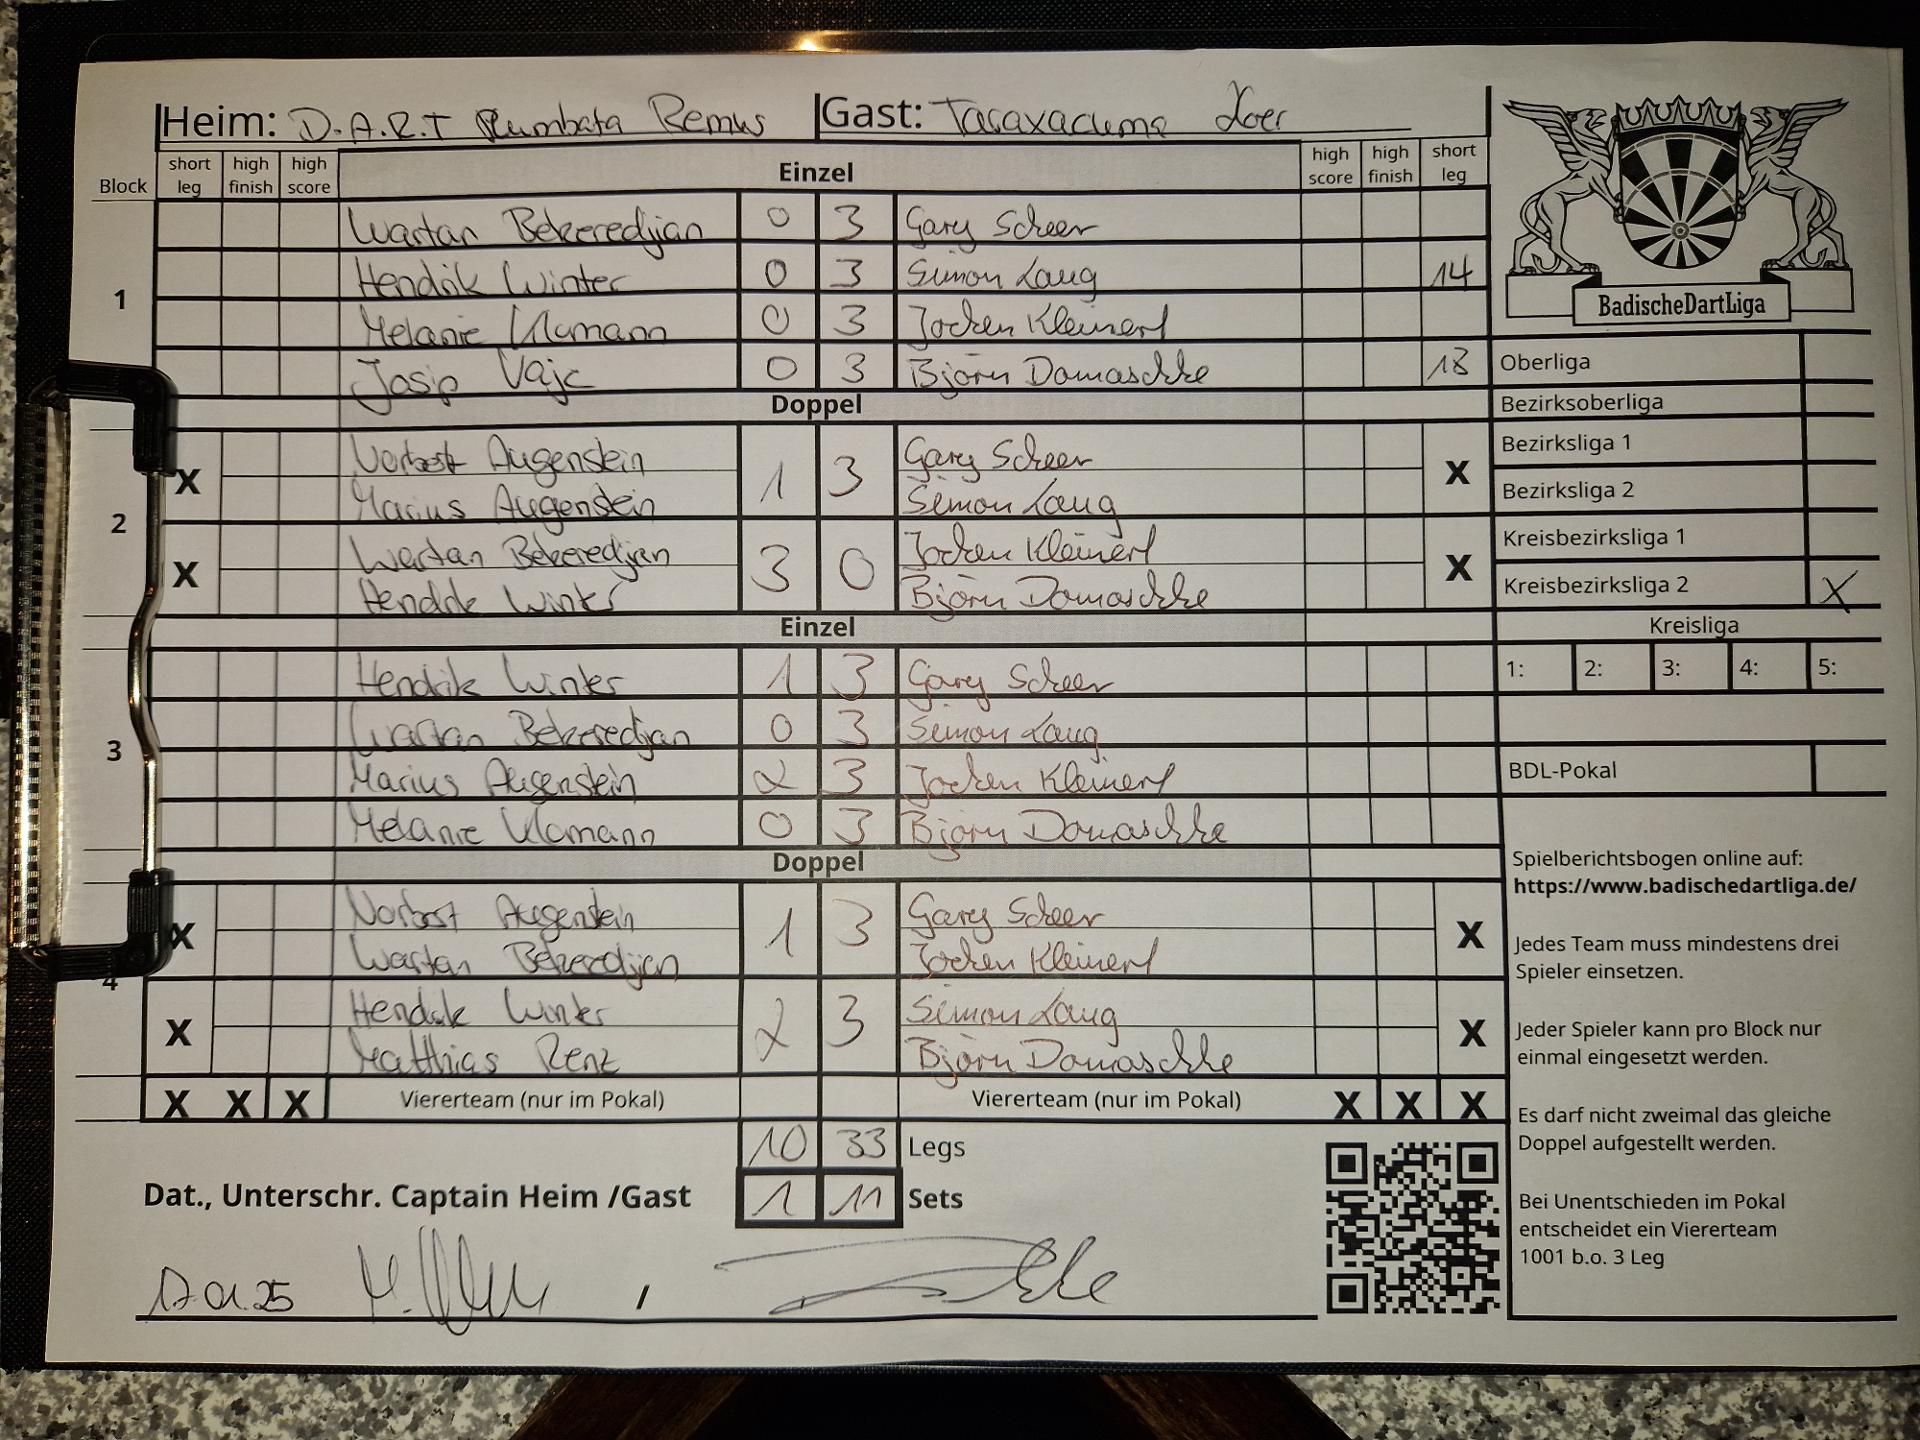 Heim: D.A.R.T Plumbata Remus Gast: Taraxacum
Block short leg high finish high score Einzel high score high finish short leg
1
Wartan Bekeredjian 0 3 Gary Scheer
Hendrik Winter 0 3 Simon Laug 14
Melanie 0 3 Jochen Kleinert
Josip Vajc 0 3 Björn Domaschke 18
Doppel
2
X Norbert Augenstein 1 3 Gary Scheer X
Marius Augenstein Simon Laug
X Wartan Bekeredjian 3 0 Jochen Kleinert X
Hendrik Winter Björn Domaschke
Einzel
3
Hendrik Winter 1 3 Gary Scheer
Wartan Bekeredjian 0 3 Simon Laug
Marius Augenstein 2 3 Jochen Kleinert
Melanie 0 3 Björn Domaschke
Doppel
4
X Norbert Augenstein 1 3 Gary Scheer X
Wartan Bekeredjian Jochen Kleinert
X Hendrik Winter 2 3 Simon Laug X
Matthias Renz Björn Domaschke
X X X Viererteam (nur im Pokal) Viererteam (nur im Pokal) X X X
10 33 Legs
Dat., Unterschr. Captain Heim /Gast 1 11 Sets
17.01.25 /
BadischeDartLiga
Oberliga
Bezirksoberliga
Bezirksliga 1
Bezirksliga 2
Kreisbezirksliga 1
Kreisbezirksliga 2 X
Kreisliga
1: 2: 3: 4: 5:
BDL-Pokal
Spielberichtsbogen online auf:
https://www.badischedartliga.de/
Jedes Team muss mindestens drei
Spieler einsetzen.
Jeder Spieler kann pro Block nur
einmal eingesetzt werden.
Es darf nicht zweimal das gleiche
Doppel aufgestellt werden.
Bei Unentschieden im Pokal
entscheidet ein Viererteam
1001 b.o. 3 Leg